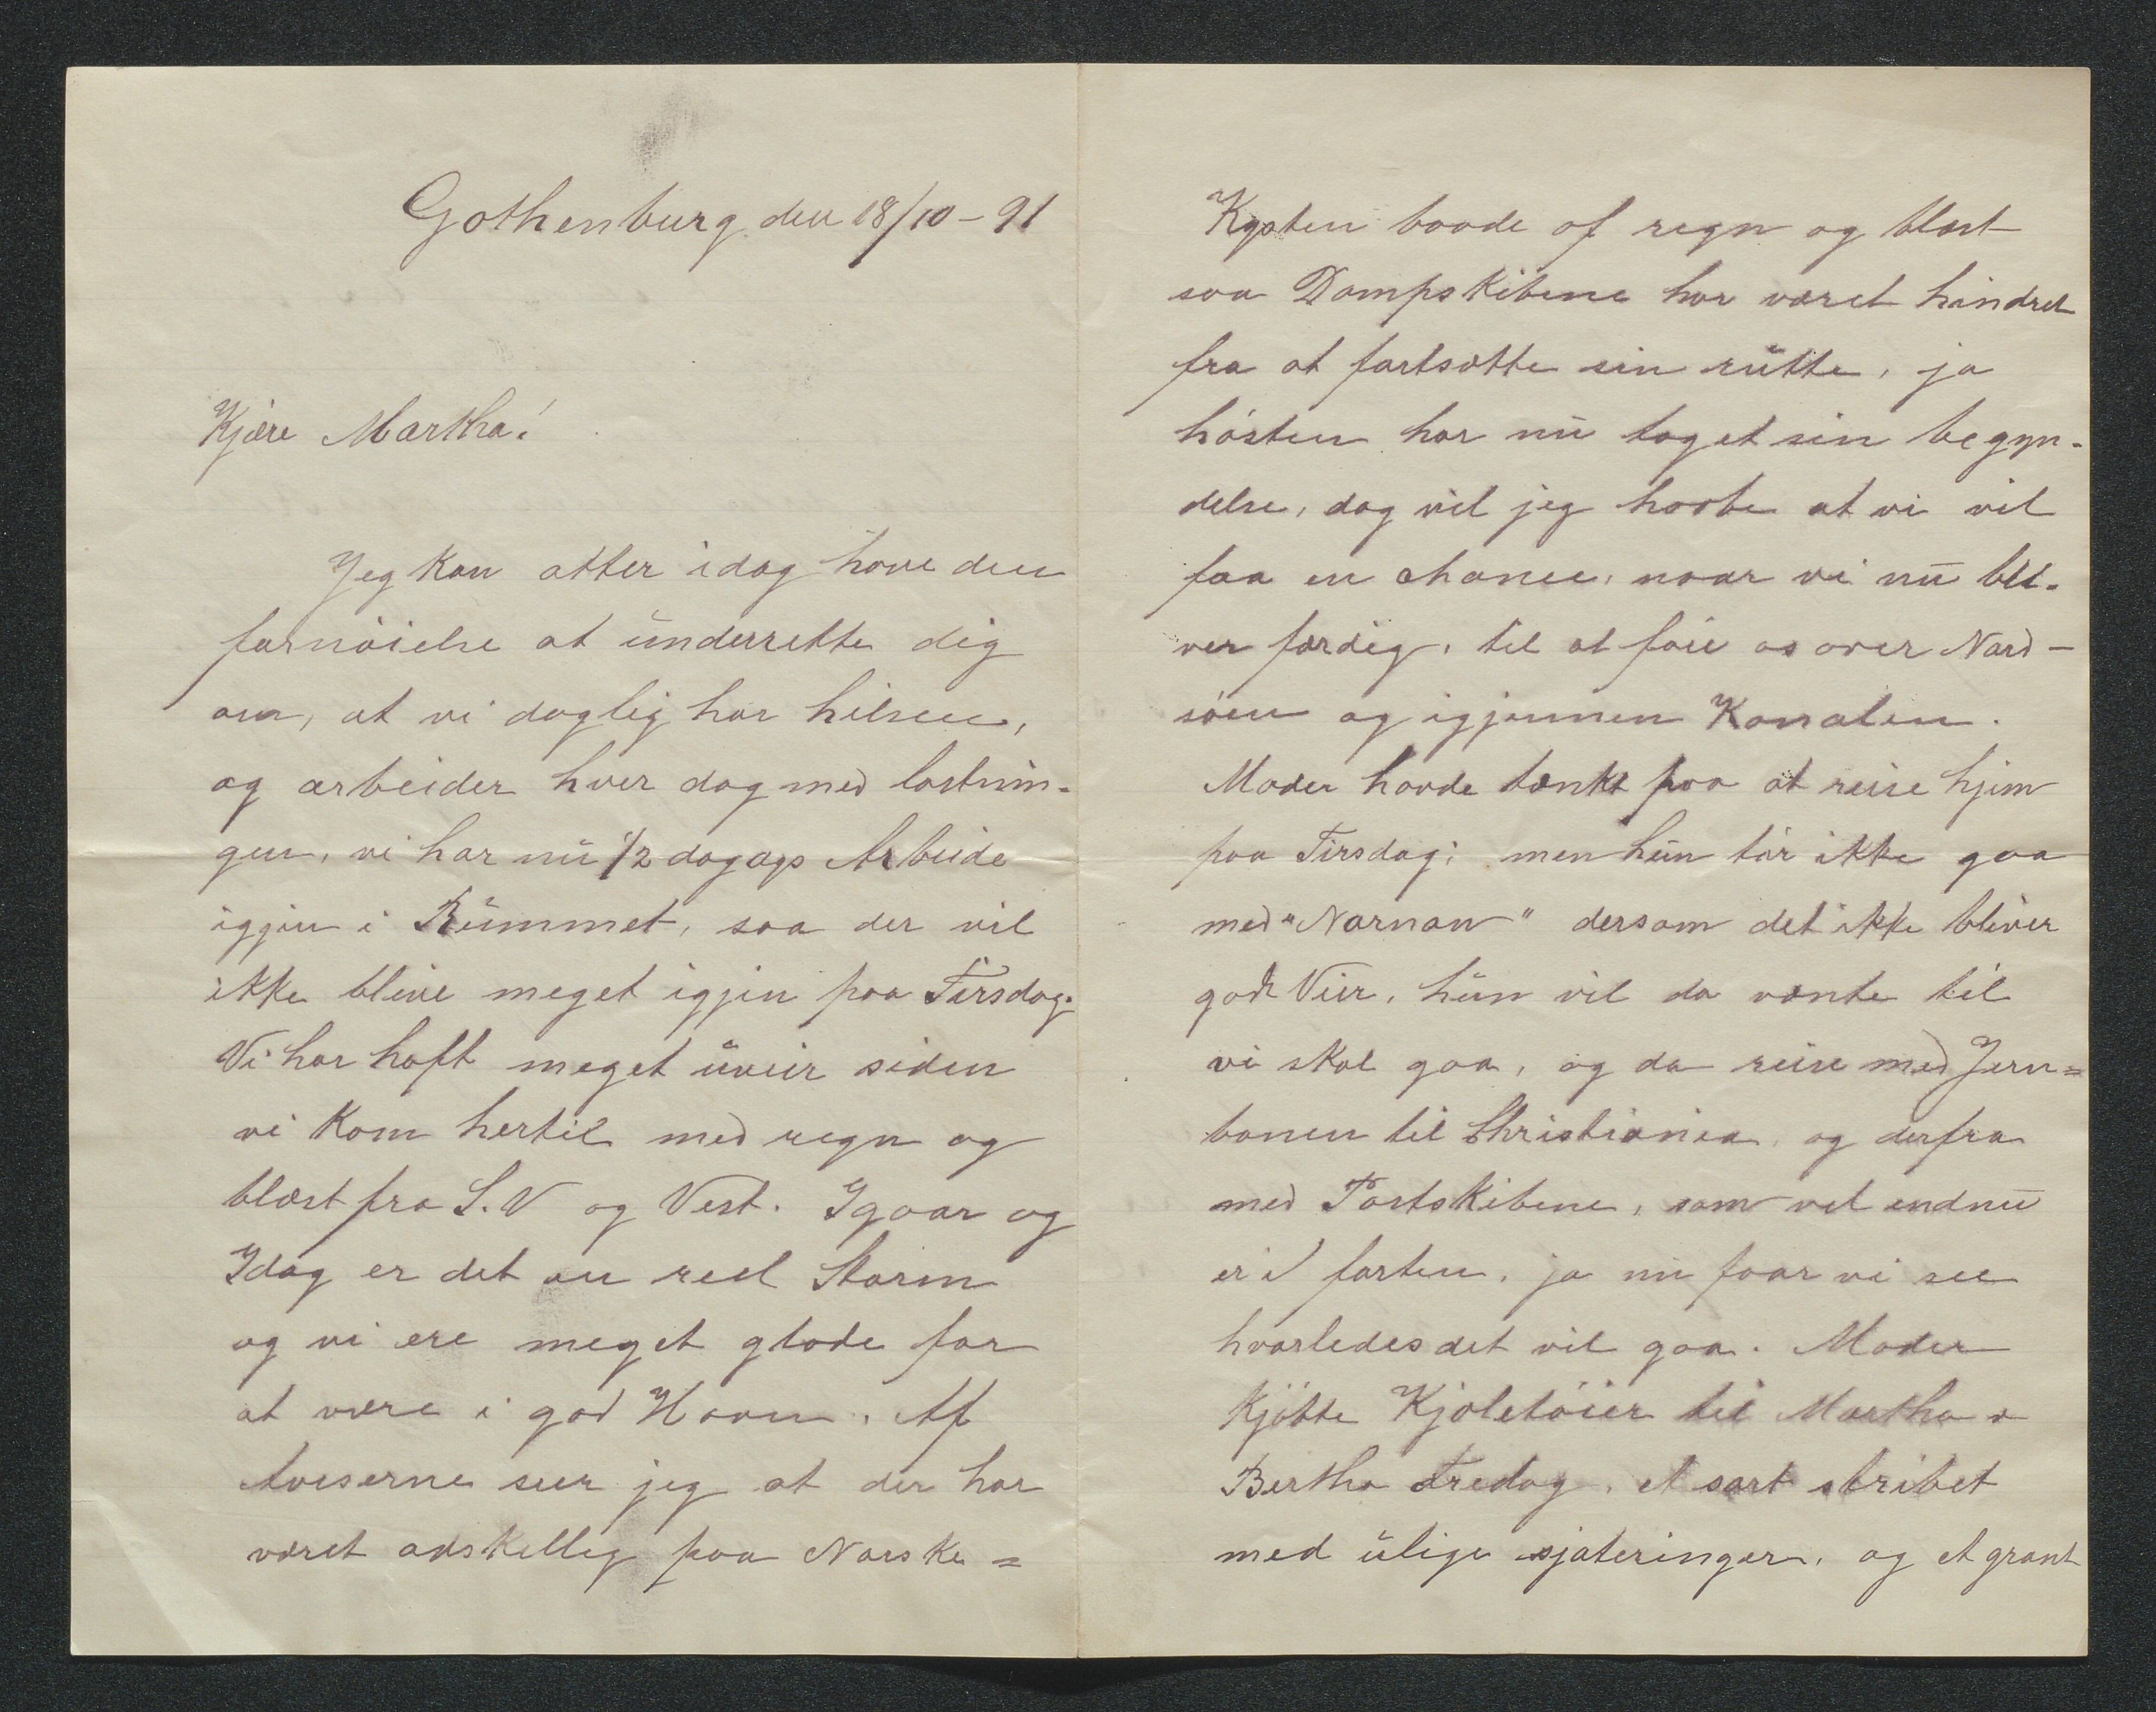 Gothenburg den 18/10-91
Kjære Martha!
Jeg kan atter idag have den
fornöielse at underrette dig
om, at vi daglig har hilsen,
og arbeider hver dag med lastnin-
gen, vi har nu 1/2 dagags Arbeide
igjen i Rummet, saa der vil
ikke blive meget igjen paa Tirsdag.
Vi har haft meget uveir siden
vi kom hertil med regn og
blæst fra S.V og Vest. Igaar og
Idag er det en reel Storm
og vi ere meget glade for
at være i god Havn. Af
Aviserne seer jeg at der har
været adskellig paa Norske=
Kysten baade af regn og blæst
saa Dampskibene har været hindret
fra at fortsætte sin rutte, ja
hösten har nu taget sin begyn-
delse, dog vil jeg haabe at vi vil
faa en chance, naar vi nu bli-
ver færdig, til at föie os over Nord-
söen og igjennem Kanalen.
Moder havde tænkt paa at reise hjem
paa Tirsdag; men hun tör ikke gaa
med "Norman" dersom det ikke bliver
godt Veir, hun vil da vænte til
vi skal gaa, og da reise med Jern=
banen til Christiania, og derfra
med Postskibene, som vel endnu
er i farten, ja nu faar vi see
hvorledes det vil gaa. Moder
kjöbte Kjoletöier til Martha &
Bertha Fredag, et sort stribet
med ulige sjateringer, og et grant